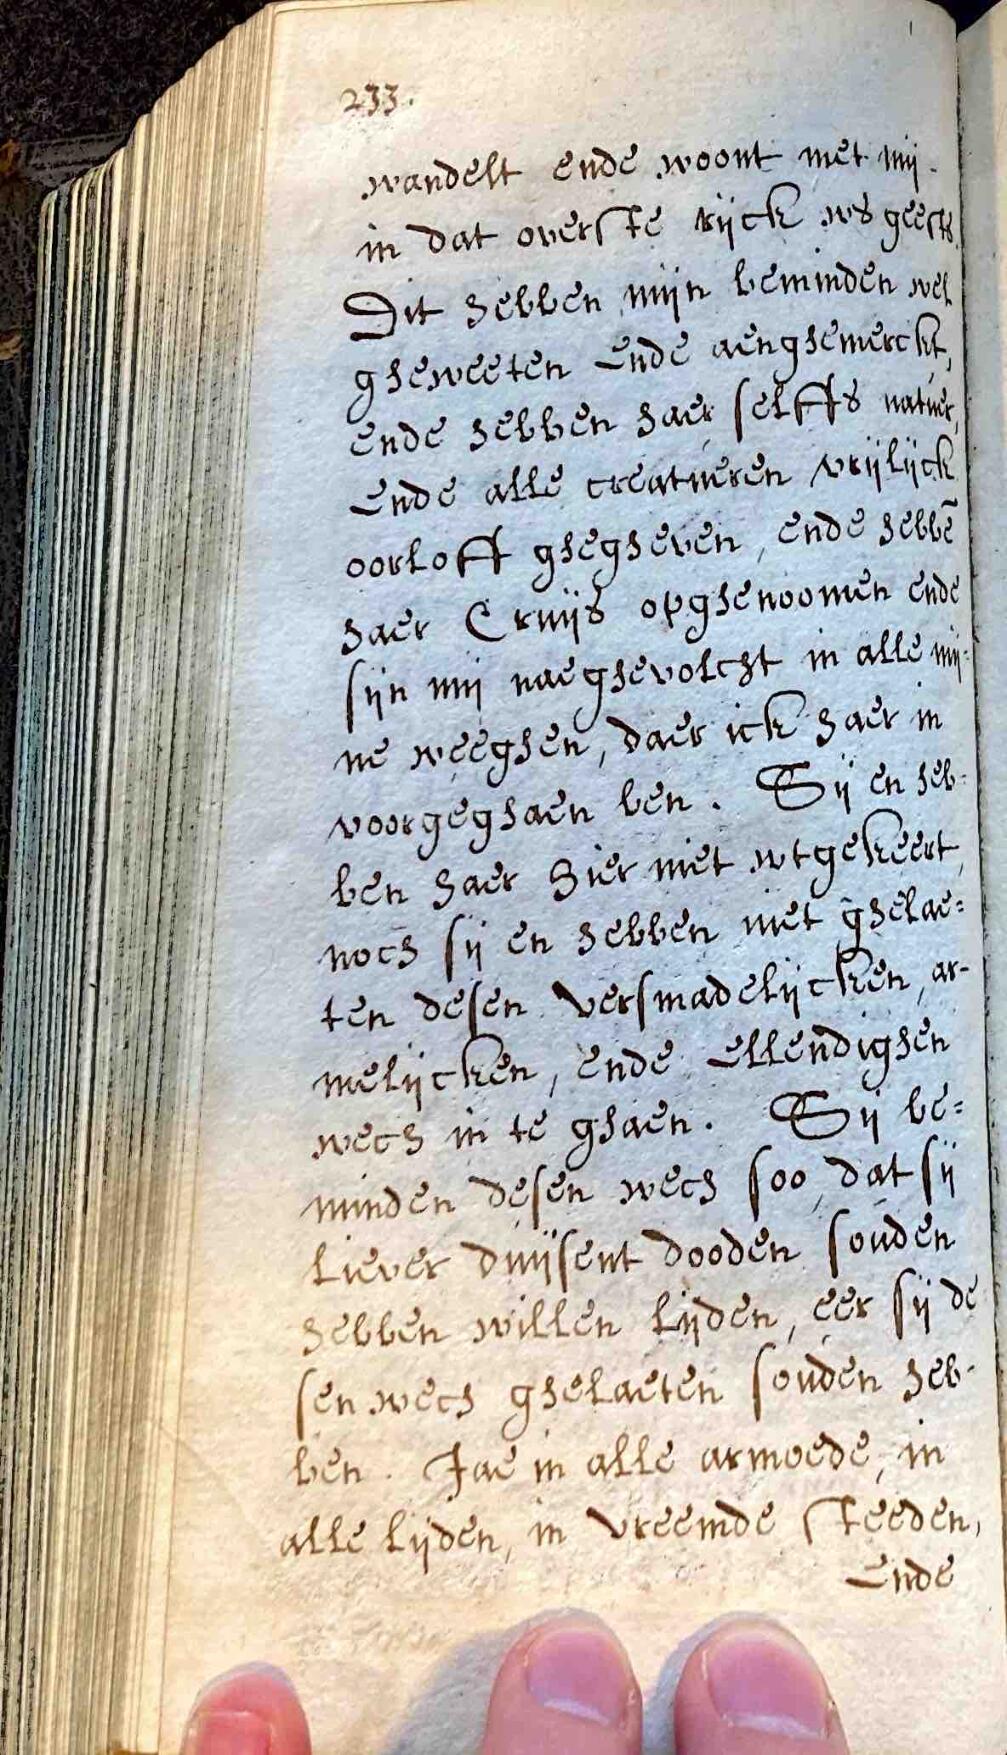 233.
wandelt ende woont met mij.
in dat overste rijck ws geests.
Dit hebben mijn beminden wel
gheweeten ende aenghemerckt,
ende hebben haer selffs natuer,
Ende alle creatueren vrijlijck
oorloff ghegheven, ende hebbē
haer Cruijs opghenoomen ende
sijn mij naeghevolcht in alle mij-
ne weeghen, daer ick haer in
voorgeghaen ben. Sij en heb-
ben haer hier niet wtgekeert,
noch sij en hebben niet ghelae=
ten desen versmadelijcken, ar-
melijcken, ende Ellendighen
wech in te ghaen. Sij be=
minden desen wech soo, dat sij
liever duijsent dooden souden
hebben willen lijden, eer sij de
sen wech ghelaeten souden heb-
ben. Jae in alle armoede, in
alle lijden, in vreemde steeden,
Ende